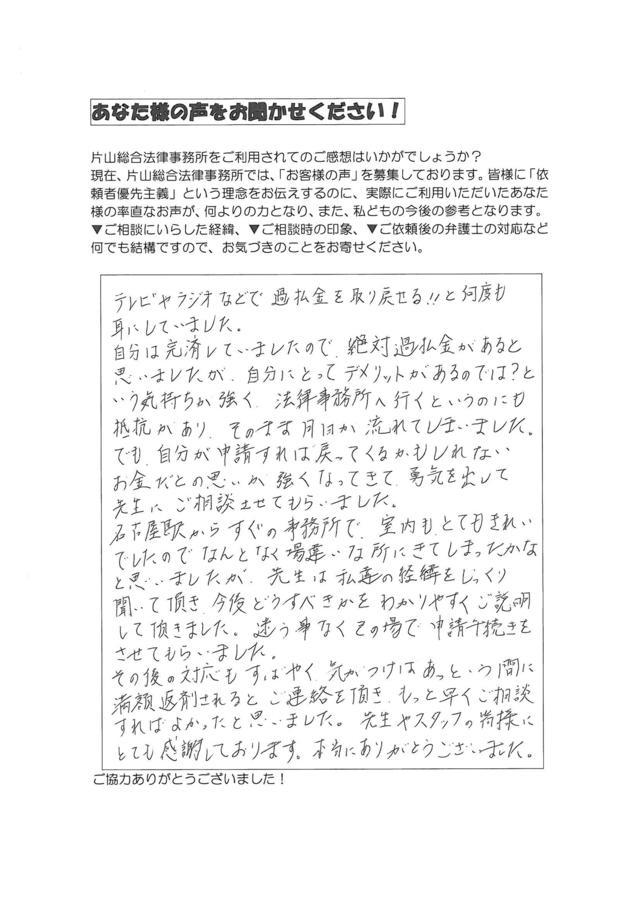 あなた様の声をお聞かせください！
片山総合法律事務所をご利用されてのご感想はいかがでしょうか？
現在、片山総合法律事務所では、「お客様の声」を募集しております。皆様に「依
頼者優先主義」という理念をお伝えするのに、実際にご利用いただいたあなた
様の率直なお声が、何よりの力となり、また、私どもの今後の参考となります。
▼ご相談にいらした経緯、▼ご相談時の印象、▼ご依頼後の弁護士の対応など
何でも結構ですので、お気づきのことをお寄せください。
テレビやラジオなどで過払金を取り戻せる!!と何度も
耳にしていました。
自分は完済していましたので、絶対過払金があると
思いましたが、自分にとってデメリットがあるのでは？と
いう気持ちが強く、法律事務所へ行くというのにも
抵抗があり、そのまま月日が流れてしまいました。
でも、自分が申請すれば戻ってくるかもしれない
お金だとの思いが強くなってきて、勇気を出して
先生にご相談させてもらいました。
名古屋駅からすぐの事務所で、室内もとてもきれい
でしたのでなんとなく場違いな所にきてしまったかな
と思いましたが、先生は私達の経緯をじっくり
聞いて頂き、今後どうすべきかをわかりやすくご説明
して頂きました。迷う事なくその場で申請手続きを
させてもらいました。
その後の対応もすばやく、気がつけばあっという間に
満額返剤されるとご連絡を頂き、もっと早くご相談
すればよかったと思いました。先生やスタッフの皆様に
とても感謝しております。本当にありがとうございました。
ご協力ありがとうございました！